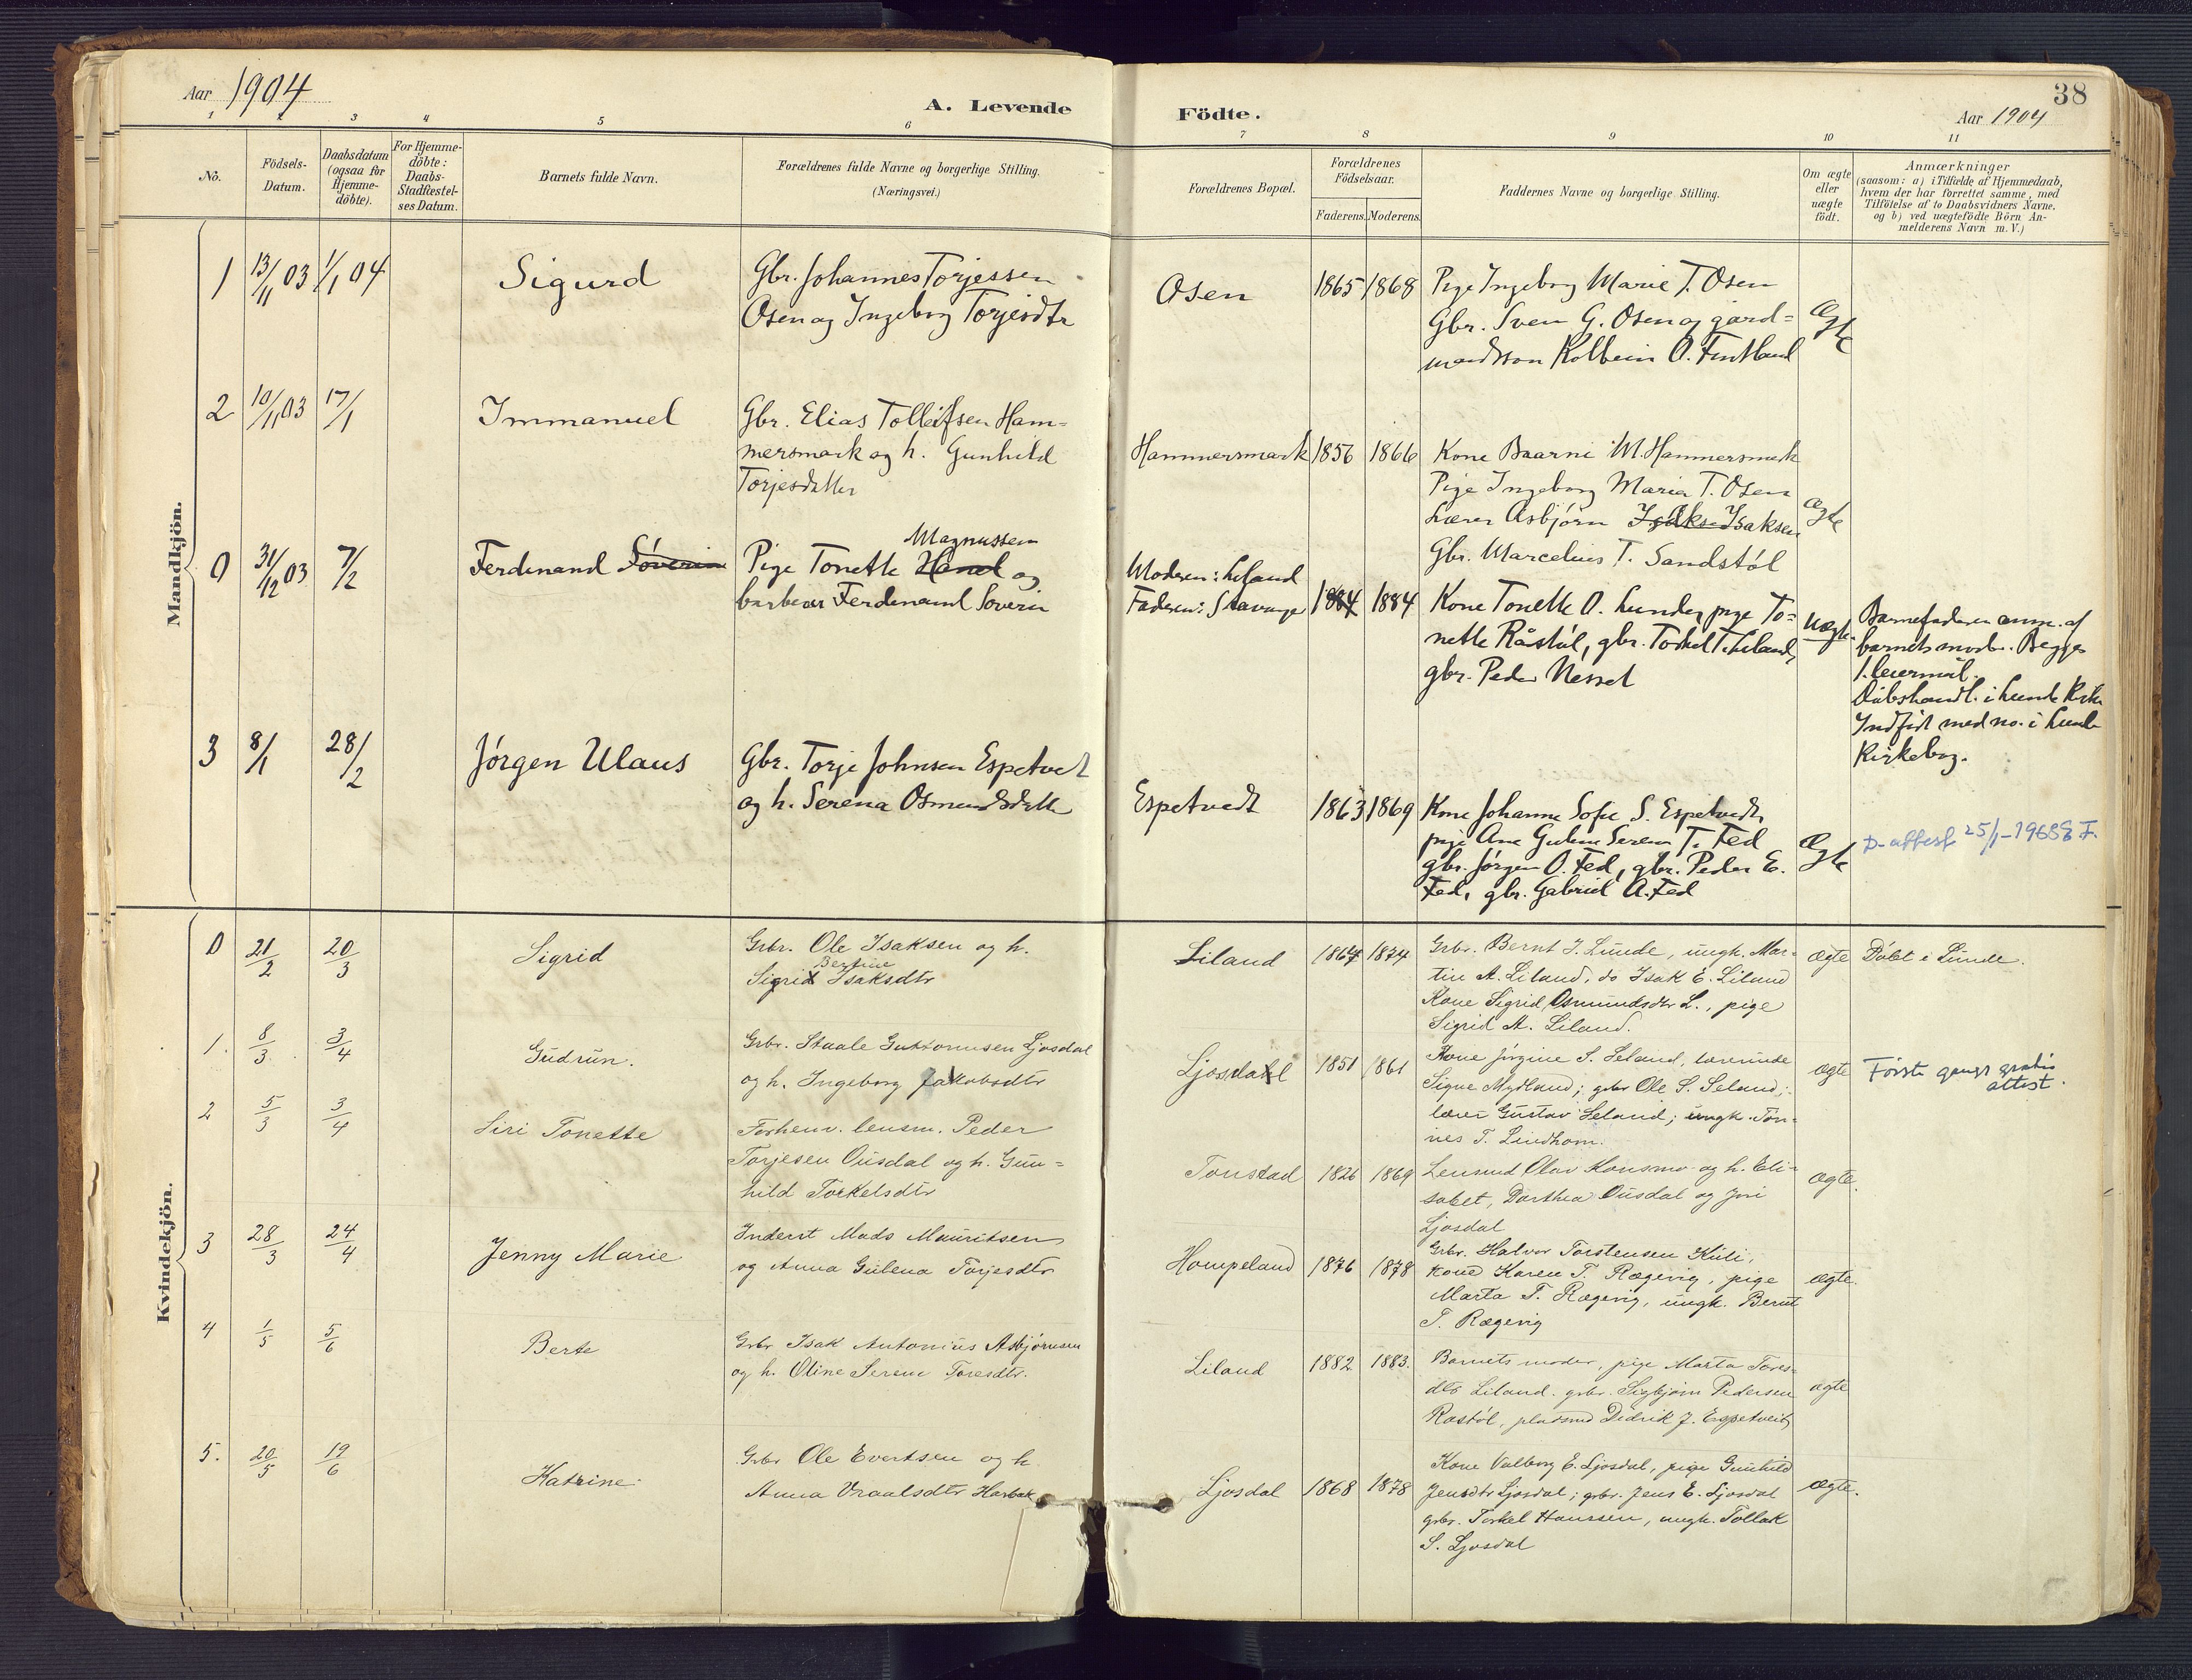 Aar 1904
A. Levende
Födte.
38
Aar 1904
1 2 3 4 5 6 7 8 9 10 11
No.
Födsels-
Datum.
Daabsdatum
(ogsaa for
Hjemme-
döbte).
For Hjemme-
döbte:
Daabs-
Stadfæstel-
ses Datum.
Barnets fulde Navn.
Forældrenes fulde Navne og borgerlige Stilling.
(Næringsvei.)
Forældrenes Bopæl.
Forældrenes
Födselsaar.
Faderens. Moderens.
Faddernes Navne og borgerlige Stilling.
Om ægte
eller
uægte
födt.
Anmærkninger
(saasom: a) i Tilfælde af Hjemmedaab,
hvem der har forrettet samme, med
Tilföielse af to Daabsvidners Navne.
og b) ved uægtefödte Börn An-
melderens Navn m. V.)
Mandkjön.
1 13/11 03 1/1 04
Sigurd
Gbr. Johannes Torjessen
Osen og Ingeborg Torjesdtr
Osen
1865 1868
Pige Ingeborg Marie T. Osen
Gbr. Sven G. Osen og gård-
mandsson Kolbein O. Fintland
Ægte
2 10/11 03 17/1
Immanuel
Gbr. Elias Tolleifsen Ham-
mersmark og h. Gunhild
Torjesdatter
Hammersmark
1856 1866
Kone Baarni M. Hammersmark
Pige Ingeborg Maria T. Osen
Lærer Asbjörn Isaksen
Gbr. Marcelius T. Sandstöl
Ægte
0 31/12 03 7/2
Ferdinand Söverin
Magnussen
Pige Tonette og
barbeer Ferdinand Soverin
Moderen: Liland
Faderen: Stavanger
1884 1884
Kone Tonette O. Lunde, pige To-
nette Råstöl, gbr. Torkel T. Liland,
gbr. Peder Nesset
Uægte
Barnefaderen anm. af
barnets moder. Begges
1. leiermål.
Dåbshandl. i Lunde Kirke
Indfört med no. i Lunde
Kirkebog.
3 8/1 28/2
Jörgen Ulaus
Gbr. Torje Johnsen Espetvedt
og h. Serena Osmundsdatter
Espetvedt
1863 1869
Kone Johanne Sofie S. Espetvedt,
pige Ane Guline Serene T. Fed
gbr. Jörgen O. Fed, gbr. Peder E.
Fed, gbr. Gabriel A. Fed
Ægte
D-attest 25/1-1968 F.
Kvindekjön.
0 21/2 20/3
Sigrid
Grbr. Ole Isaksen og h.
Bertine
Sigrid Isaksdtr
Liland
1864 1874
Grbr. Bernt J. Lunde, ungk. Mar-
tin A. Liland, do Isak E. Liland
Kone Sigrid Osmundsdtr L., pige
Sigrid A. Liland.
ægte
Döbt i Lunde.
1. 8/3 3/4
Gudrun.
Grbr. Staale Guttormsen Ljosdal
og h. Ingeborg Jakobsdtr
Ljosdal
1851 1861
Kone Jörgine S. Seland, lærerinde
Signe Mydland; grbr Ole S. Seland;
lærer Gustav Seland; ungk. Tön-
nes T. Lindhom.
ægte
Første gangs gratis
attest.
2 5/3 3/4
Siri Tonette
Forhenv. lensm. Peder
Torjesen Ousdal og h. Gun-
hild Torkelsdtr
Tonstad
1826 1869
Lensmd Olav Konsmo og h. Eli-
sabet, Dorthea Ousdal og Joni
Ljosdal
ægte.
3 28/3 24/4
Jenny Marie
Inderst Mads Mauritsen
og Anna Gulena Torjesdtr
Hompeland
1876 1878
Grbr. Halvor Torstensen Kuli,
Kone Karen T. Rægevig, pige
Marta T. Rægevig, ungk. Bernt
T. Rægevig
ægte.
4 1/5 5/6
Berte
Grbr Isak Antonius Asbjörnsen
og h. Oline Serene Toresdtr.
Liland
1882 1883.
Barnets moder, pige Marta Tores-
dtr Liland. grbr. Sigbjörn Pedersen
Rastöl, pladsmd Didrik J. Espetveit
ægte
5. 20/5 19/6
Katrine
Grbr Ole Evertsen og h.
Anna Vraalsdtr Harbak
Ljosdal
1868 1878
Kone Valborg E. Ljosdal, pige Gunhild
Jensdtr Ljosdal; grbr. Jens E. Ljosdal
grbr. Torkel Hanssen, ungk. Tollak
S. Ljosdal
ægte.